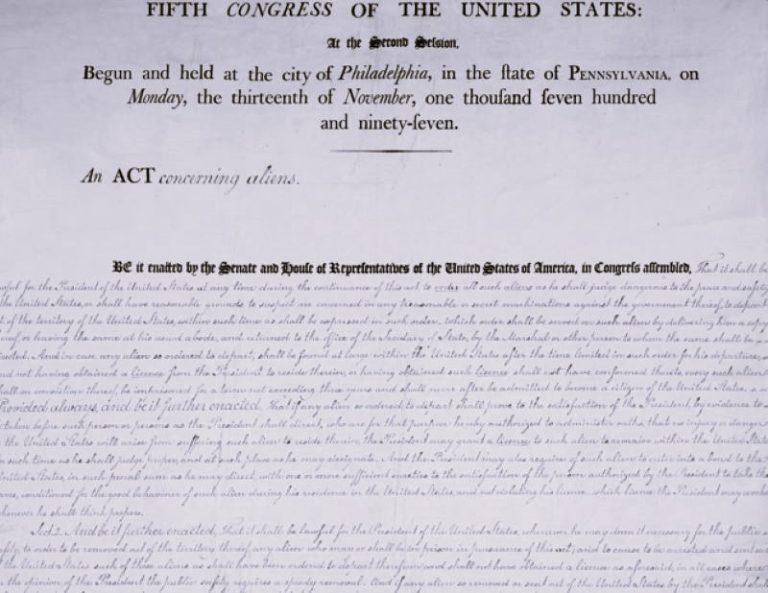 FIFTH CONGRESS OF THE UNITED STATES:
At the Second Seſſion,
Begun and held at the city of Philadelphia, in the ſtate of PENNSYLVANIA, on
Monday, the thirteenth of November, one thouſand ſeven hundred
and ninety-ſeven.
An ACT concerning aliens.
BE it enacted by the Senate and Houſe of Repreſentatives of the United States of America, in Congreſs aſſembled, That it shall be
lawful for the President of the United States at any time during the continuance of this act to order all such aliens as he shall judge dangerous to the peace and safety
the United States, or shall have reasonable grounds to suspect are concerned in any treasonable or secret machinations against the government thereof, to depart
of the territory of the United States, within such time as shall be expressed in such order, which order shall be served on such alien by delivering him a copy
thereof or leaving the same at his usual abode, and returned to the office of the Secretary of State, by the Marshal or other person to whom the same shall be
directed. And in case any alien so ordered to depart, shall be found at large within the United States after the time limited in such order for his departure,
and not having obtained a license from the President to reside therein, or having obtained such license shall not have conformed thereto, every such alien
shall on conviction thereof, be imprisoned for a term not exceeding three years and shall never after be admitted to become a citizen of the United States.
Provided always, and be it further enacted, That if any alien so ordered to depart shall prove to the satisfaction of the President, by evidence to
taken before such person or persons as the President shall direct, who are for that purpose hereby authorized to administer oaths, that no injury or danger
the United States will arise from suffering such alien to reside therein, the President may grant a license to such alien to remain within the United States
such time as he shall judge proper, and at such place as he may designate. And the President may also require of such alien to enter into a bond to the
United States, in such penal sum as he may direct, with one or more sufficient sureties to the satisfaction of the person authorized by the President to take the
same, conditioned for the good behaviour of such alien during his residence in the United States, and not violating his license, which license the President may revoke
whenever he shall think proper.
Sect. 2. And be it further enacted, That it shall be lawful for the President of the United States, whenever he may deem it necessary for the public
safety, to order to be removed out of the territory thereof any alien who may or shall be in prison in pursuance of this act; and to cause to be arrested and sent out
of the United States such of those aliens as shall have been ordered to depart therefrom and shall not have obtained a license as aforesaid, in all cases where
the opinion of the President the public safety requires a speedy removal. And if any alien so removed or sent out of the United States by the President shall